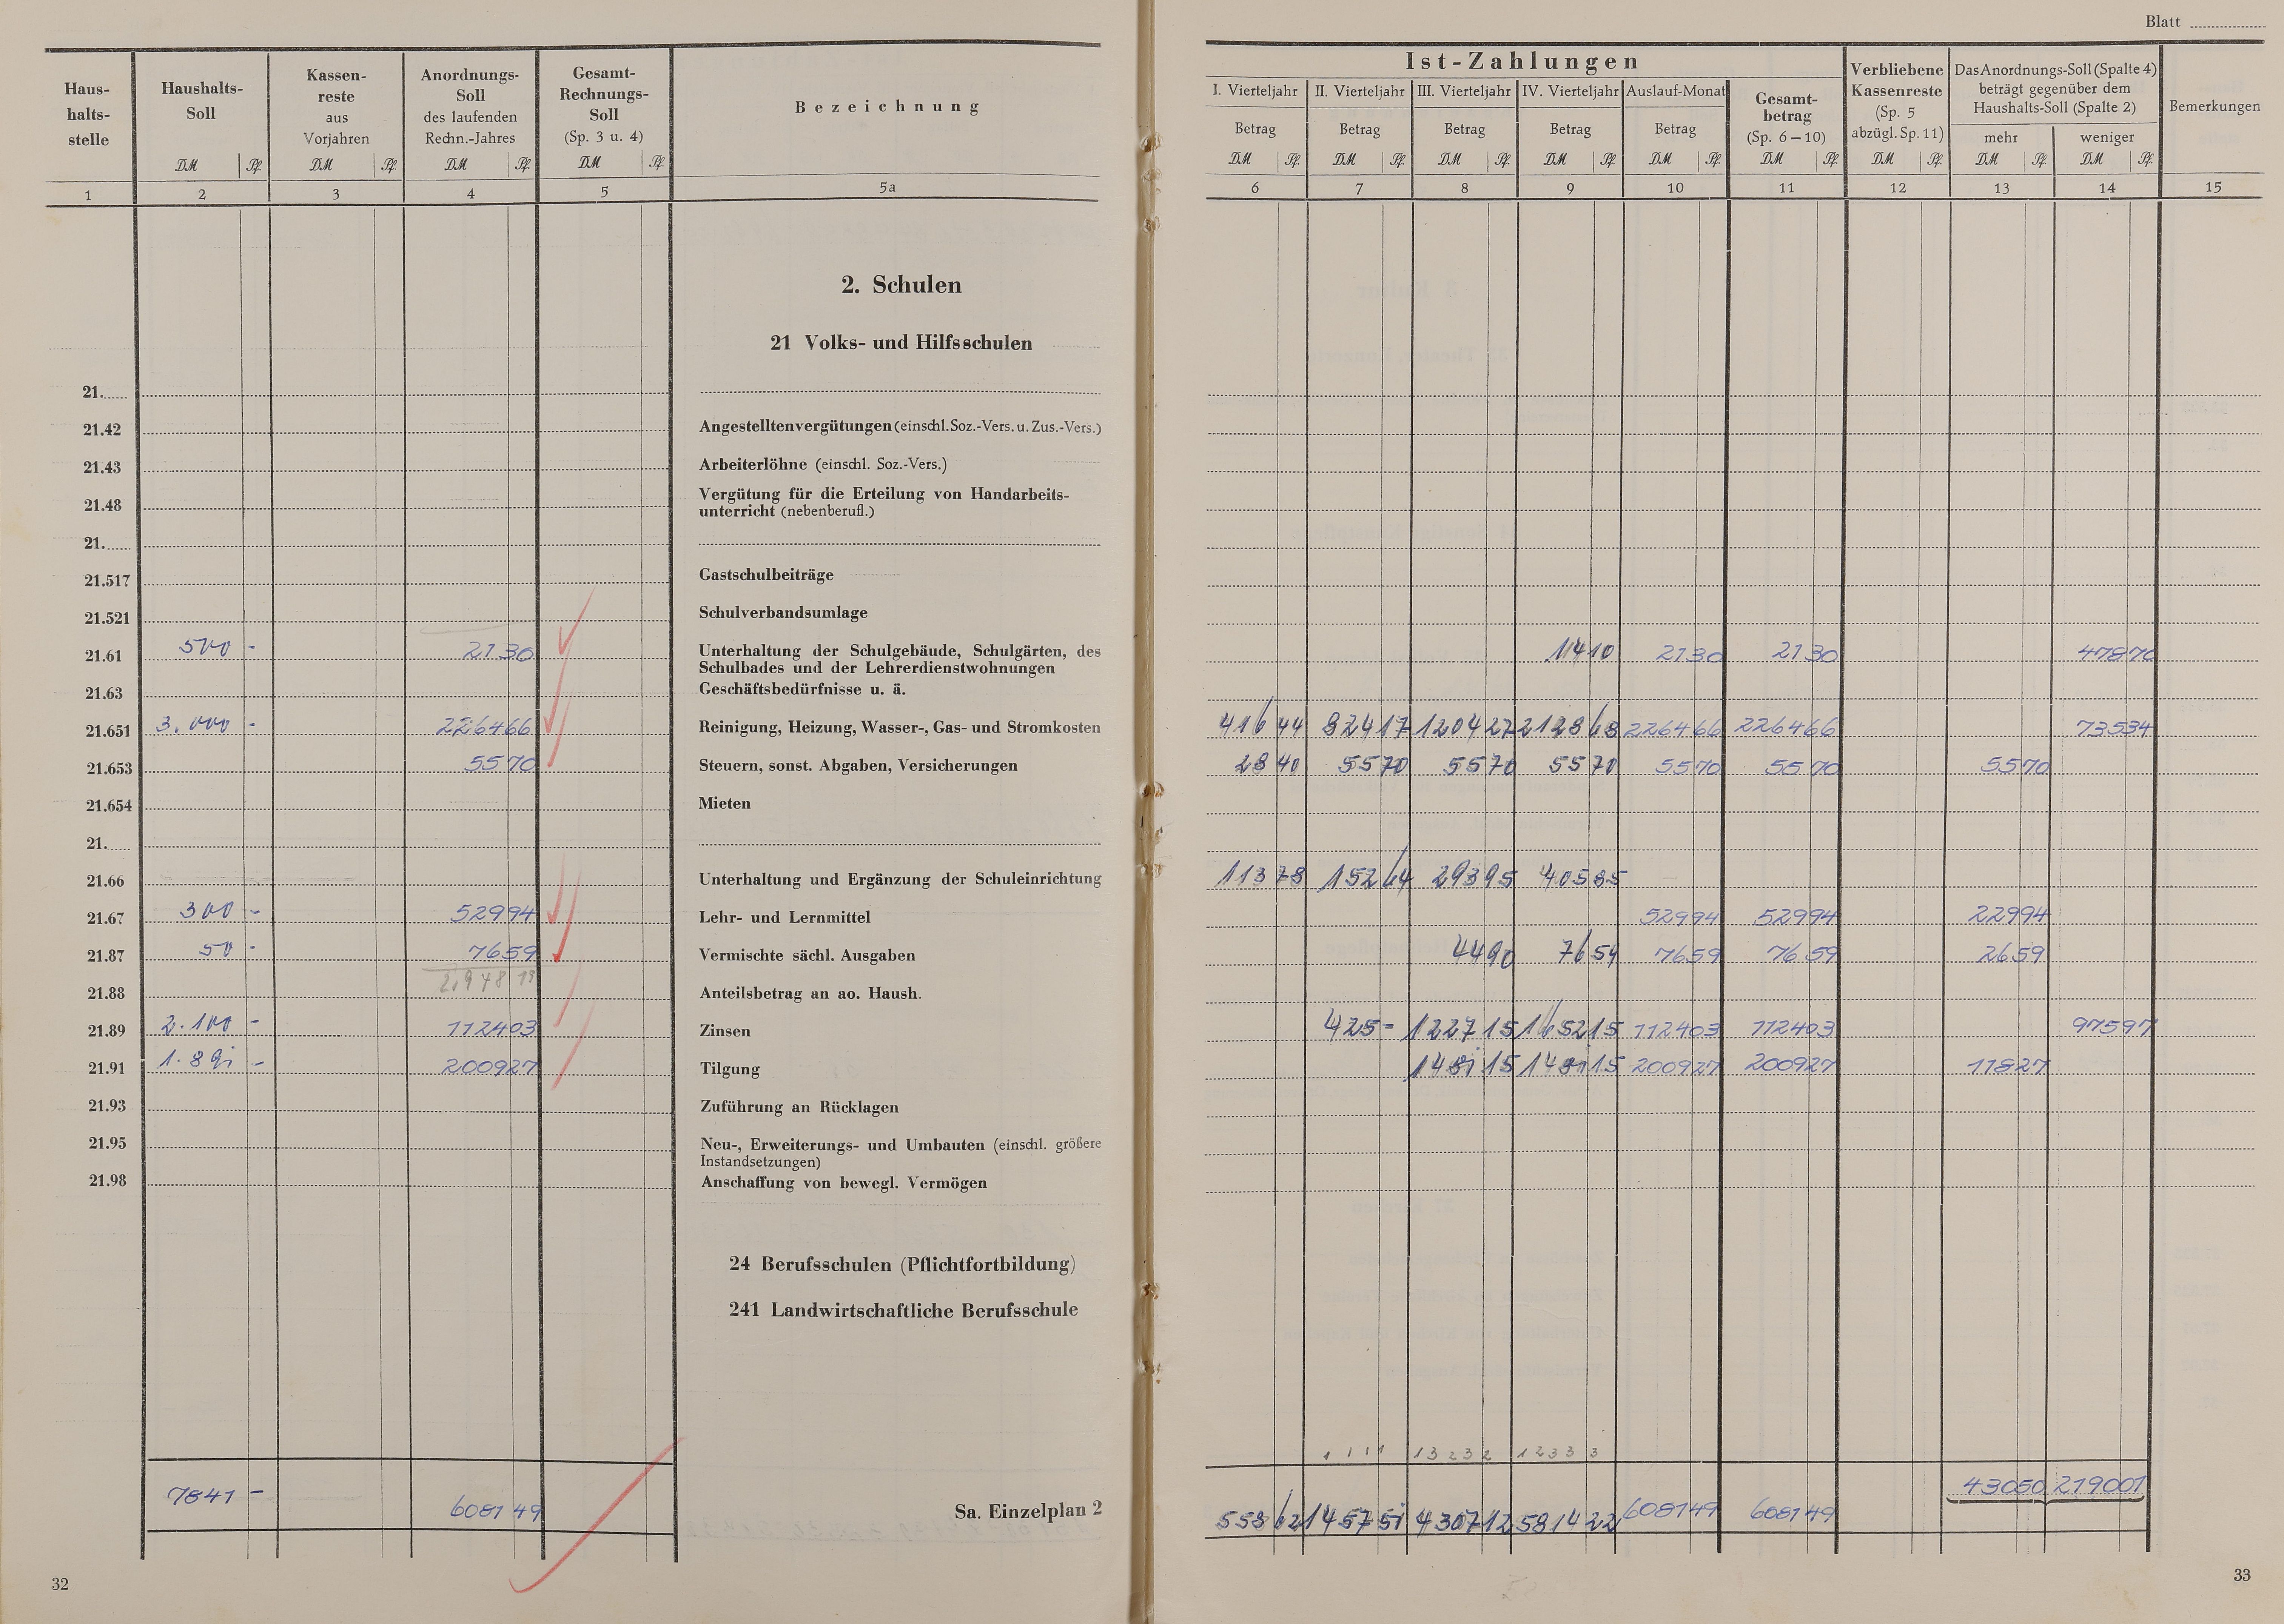 Blatt
Haus-
halts-
stelle
Haushalts-
Soll
Kassen-
reste
aus
Vorjahren
Anordnungs-
Soll
des laufenden
Rechn.-Jahres
Gesamt-
Rechnungs-
Soll
(Sp. 3 u. 4)
Bezeichnung
DM Pf. DM Pf. DM Pf. DM Pf.
1 2 3 4 5 5a
2. Schulen
21 Volks- und Hilfsschulen
21.
21.42 Angestelltenvergütungen (einschl. Soz.-Vers. u. Zus.-Vers.)
21.43 Arbeiterlöhne (einschl. Soz.-Vers.)
21.48 Vergütung für die Erteilung von Handarbeits-
unterricht (nebenberufl.)
21.
21.517 Gastschulbeiträge
21.521 Schulverbandsumlage
21.61 500 - 21 30 Unterhaltung der Schulgebäude, Schulgärten, des
Schulbades und der Lehrerdienstwohnungen
21.63 Geschäftsbedürfnisse u. ä.
21.651 3.000 - 2264 66 Reinigung, Heizung, Wasser-, Gas- und Stromkosten
21.653 55 70 Steuern, sonst. Abgaben, Versicherungen
21.654 Mieten
21.
21.66 Unterhaltung und Ergänzung der Schuleinrichtung
21.67 300 - 529 94 Lehr- und Lernmittel
21.87 50 - 76 59 Vermischte sächl. Ausgaben
2948 19
21.88 Anteilsbetrag an ao. Haush.
21.89 2.100 - 1124 03 Zinsen
21.91 1.891 - 2009 27 Tilgung
21.93 Zuführung an Rücklagen
21.95 Neu-, Erweiterungs- und Umbauten (einschl. größere
Instandsetzungen)
21.98 Anschaffung von bewegl. Vermögen
24 Berufsschulen (Pflichtfortbildung)
241 Landwirtschaftliche Berufsschule
7841 - 6081 49 Sa. Einzelplan 2
32
Ist-Zahlungen
I. Vierteljahr II. Vierteljahr III. Vierteljahr IV. Vierteljahr Auslauf-Monat
Betrag Betrag Betrag Betrag Betrag
Gesamt-
betrag
(Sp. 6–10)
Verbliebene
Kassenreste
(Sp. 5
abzügl. Sp. 11)
Das Anordnungs-Soll (Spalte 4)
beträgt gegenüber dem
Haushalts-Soll (Spalte 2)
mehr weniger
Bemerkungen
DM Pf. DM Pf. DM Pf. DM Pf. DM Pf. DM Pf. DM Pf. DM Pf. DM Pf.
6 7 8 9 10 11 12 13 14 15
14 10 21 30 21 30 478 70
416 44 824 17 1204 27 2128 68 2264 66 2264 66 735 34
28 40 55 70 55 70 55 70 55 70 55 70 55 70
113 78 152 64 293 95 405 85
529 94 529 94 229 94
44 90 76 59 76 59 76 59 26 59
425 - 1227 15 1652 15 1124 03 1124 03 975 97
1481 15 1481 15 2009 27 2009 27 118 27
1 1 1 1 1 3 2 3 2 1 2 3 3 3
430 50 2190 01
558 62 1457 51 4307 12 5814 22 6081 49 6081 49
33